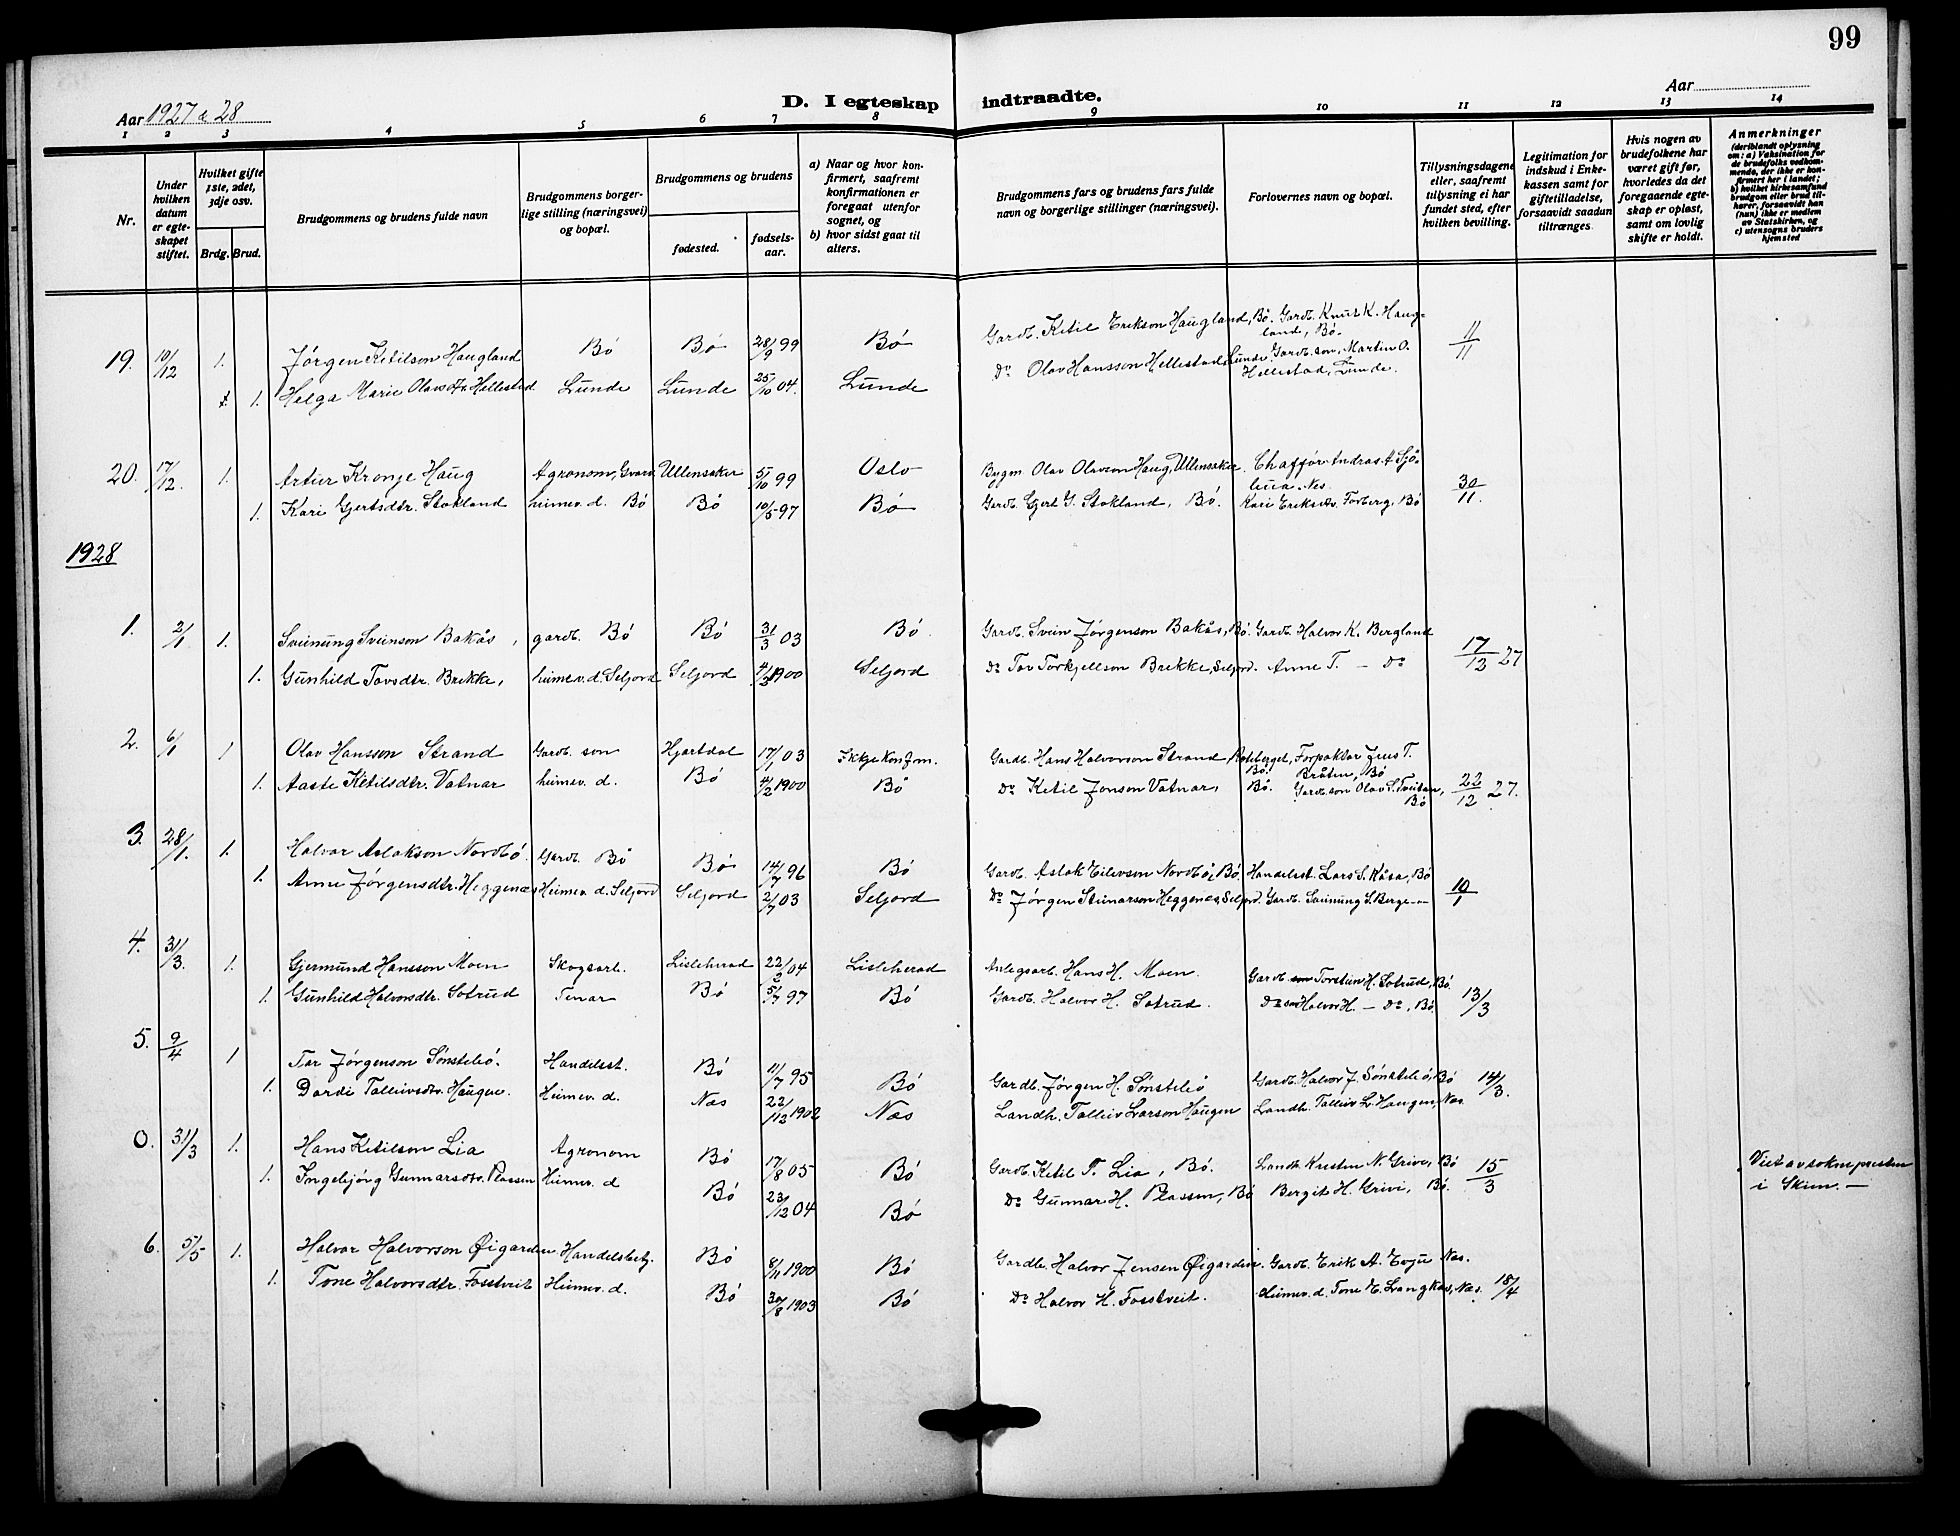 99
Aar 1927 & 28
D. I egteskap indtraadte.
Aar
1 2 3 4 5 6 7 8 9 10 11 12 13 14
Nr.
Under hvilken datum er egteskapet stiftet.
Hvilket gifte 1ste, 2det, 3dje osv.
Brdg. Brud.
Brudgommens og brudens fulde navn
Brudgommens borgerlige stilling (næringsvei) og bopæl.
Brudgommens og brudens
fødested.
fødselsaar.
a) Naar og hvor konfirmert, saafremt konfirmationen er foregaat utenfor sognet, og
b) hvor sidst gaat til alters.
Brudgommens fars og brudens fars fulde navn og borgerlige stillinger (næringsvei).
Forlovernes navn og bopæl.
Tillysningsdagene eller, saafremt tillysning ei har fundet sted, efter hvilken bevilling.
Legitimation for indskud i Enkekassen samt for giftetilladelse, forsaavidt saadan tiltrænges
Hvis nogen av brudefolkene har været gift før, hvorledes da det foregaaende egteskap er opløst, samt om lovlig skifte er holdt.
Anmerkninger (deriblandt oplysning om: a) Vaksination for de brudefolks vedkommende, der ikke er konfirmert her i landet; b) hvilket kirkesamfund brudgom eller brud tilhører, forsaavidt han (hun) ikke er medlem av Statskirken, og c) utensogns bruders hjemsted
19. 10/12 1. Jørgen Ketilson Haugland Bø Bø 28/9 99 Bø Gardb. Ketil Erikson Haugland, Bø. Gardb. Knut K. Haugland, Bø. 11/11
1. Helga Marie Olavsdtr. Hellestad Lunde Lunde 25/10 04. Lunde Do Olav Hansson Hellestad, Lunde. Gardb. son, Martin O. Hellestad, Lunde.
20. 17/12. 1. Artur Kronje Haug Agronom, Gvarv Ullensaker 5/10 99 Oslo Bygm Olav Olavson Haug, Ullensaker. Nes. 30/11.
1. Kari Gjertsdtr. Stokland heimev. d. Bø Bø 10/5 97 Bø Gardb. Gjert G. Stokland, Bø. Kari Eriksdtr. Forberg, Bø
1928
1. 2/1 1. Sveinung Sveinson Bakås, gardb. Bø Bø 31/3 03 Bø. Gardb. Svein Jørgenson Bakås, Bø. Gardb. Halvor K. Bergland 17/12 27
1. Gunhild Tovsdtr. Brekke, heimev. d. Seljord Seljord 4/2 1900 Seljord Do Tov Torkjellson Brekke, Seljord. Anne T. — Do
2. 6/1 1 Olav Hansson Strand Gardb. son Hjartdal 17/1 03 Ikkje konfirm. Gardb. Hans Halvorson Strand, Bø. Forpaktar Jens T. Bråten, Bø
1. Aaste Ketilsdtr. Vatnar heimev. d. Bø 4/2 1900 Bø Do Ketil Jonson Vatnar, Bø. Gardb. son Olav S. Tveitan, Bø 22/12 27.
3. 28/1. 1. Halvor Aslakson Nordbø. Gardb. Bø Bø 14/7 96 Bø Gardb. Aslak Eilevson Nordbø, Bø. Handelsst. Lars S. Kåsa, Bø
1. Anne Jørgensdtr. Heggenes Heimev. d. Seljord Seljord 2/7 03 Seljord Do Jørgen Steinarson Heggenes, Seljord. Gardb. Sveinung S. Berge — 10/1
4. 31/3. 1. Gjermund Hansson Moen Skogsarb. Lisleherad 22/2 04 Lisleherad Anlegsarb. Hans H. Moen. Gardb. son Torstein H. Sotrud, Bø.
1. Gunhild Halvorsdtr. Sotrud Tenar Bø 5/7 97 Bø Gardb. Halvor H. Sotrud. Do son Halvor H. — Do, Bø 13/3
5. 9/4 1 Tor Jørgenson Sønsteliø. Handelsst. Bø 11/7 95 Bø Gardb. Jørgen H. Sønsteliø Gardb. Halvor J. Sønsteliø, Bø 14/3.
1. Dordi Tolleivsdtr. Haugen. Heimev. d. Nes 22/12 1902 Nes Landh. Tolleiv Larson Haugen Landh. Tolleiv L. Haugen, Nes.
0. 31/3 1. Hans Ketilson Lia Agronom Bø 17/8 05 Bø Gardb. Ketil T. Lia, Bø. Landh. Kristen N. Grive, Bø 15/3 Viet av soknepresten i Skien. —
1. Ingebjørg Gunnarsdtr. Plassen Heimev. d Bø 23/12 04 Bø Do Gunnar H. Plassen, Bø Bergit H. Grivi, Bø.
6. 5/5 1. Halvor Halvorson Øigarden. Handelsbetj. Bø 8/11 1900 Bø Gardb. Halvor Jensen Øigarden. Gardb. Erik A. Evju Nes.
1. Tone Halvorsdtr. Fosstveit Heimev. d. Bø 30/8 1903 Bø Do Halvor H. Fosstveit. Heimev. d. Tone E. Langkås, Nes. 18/4